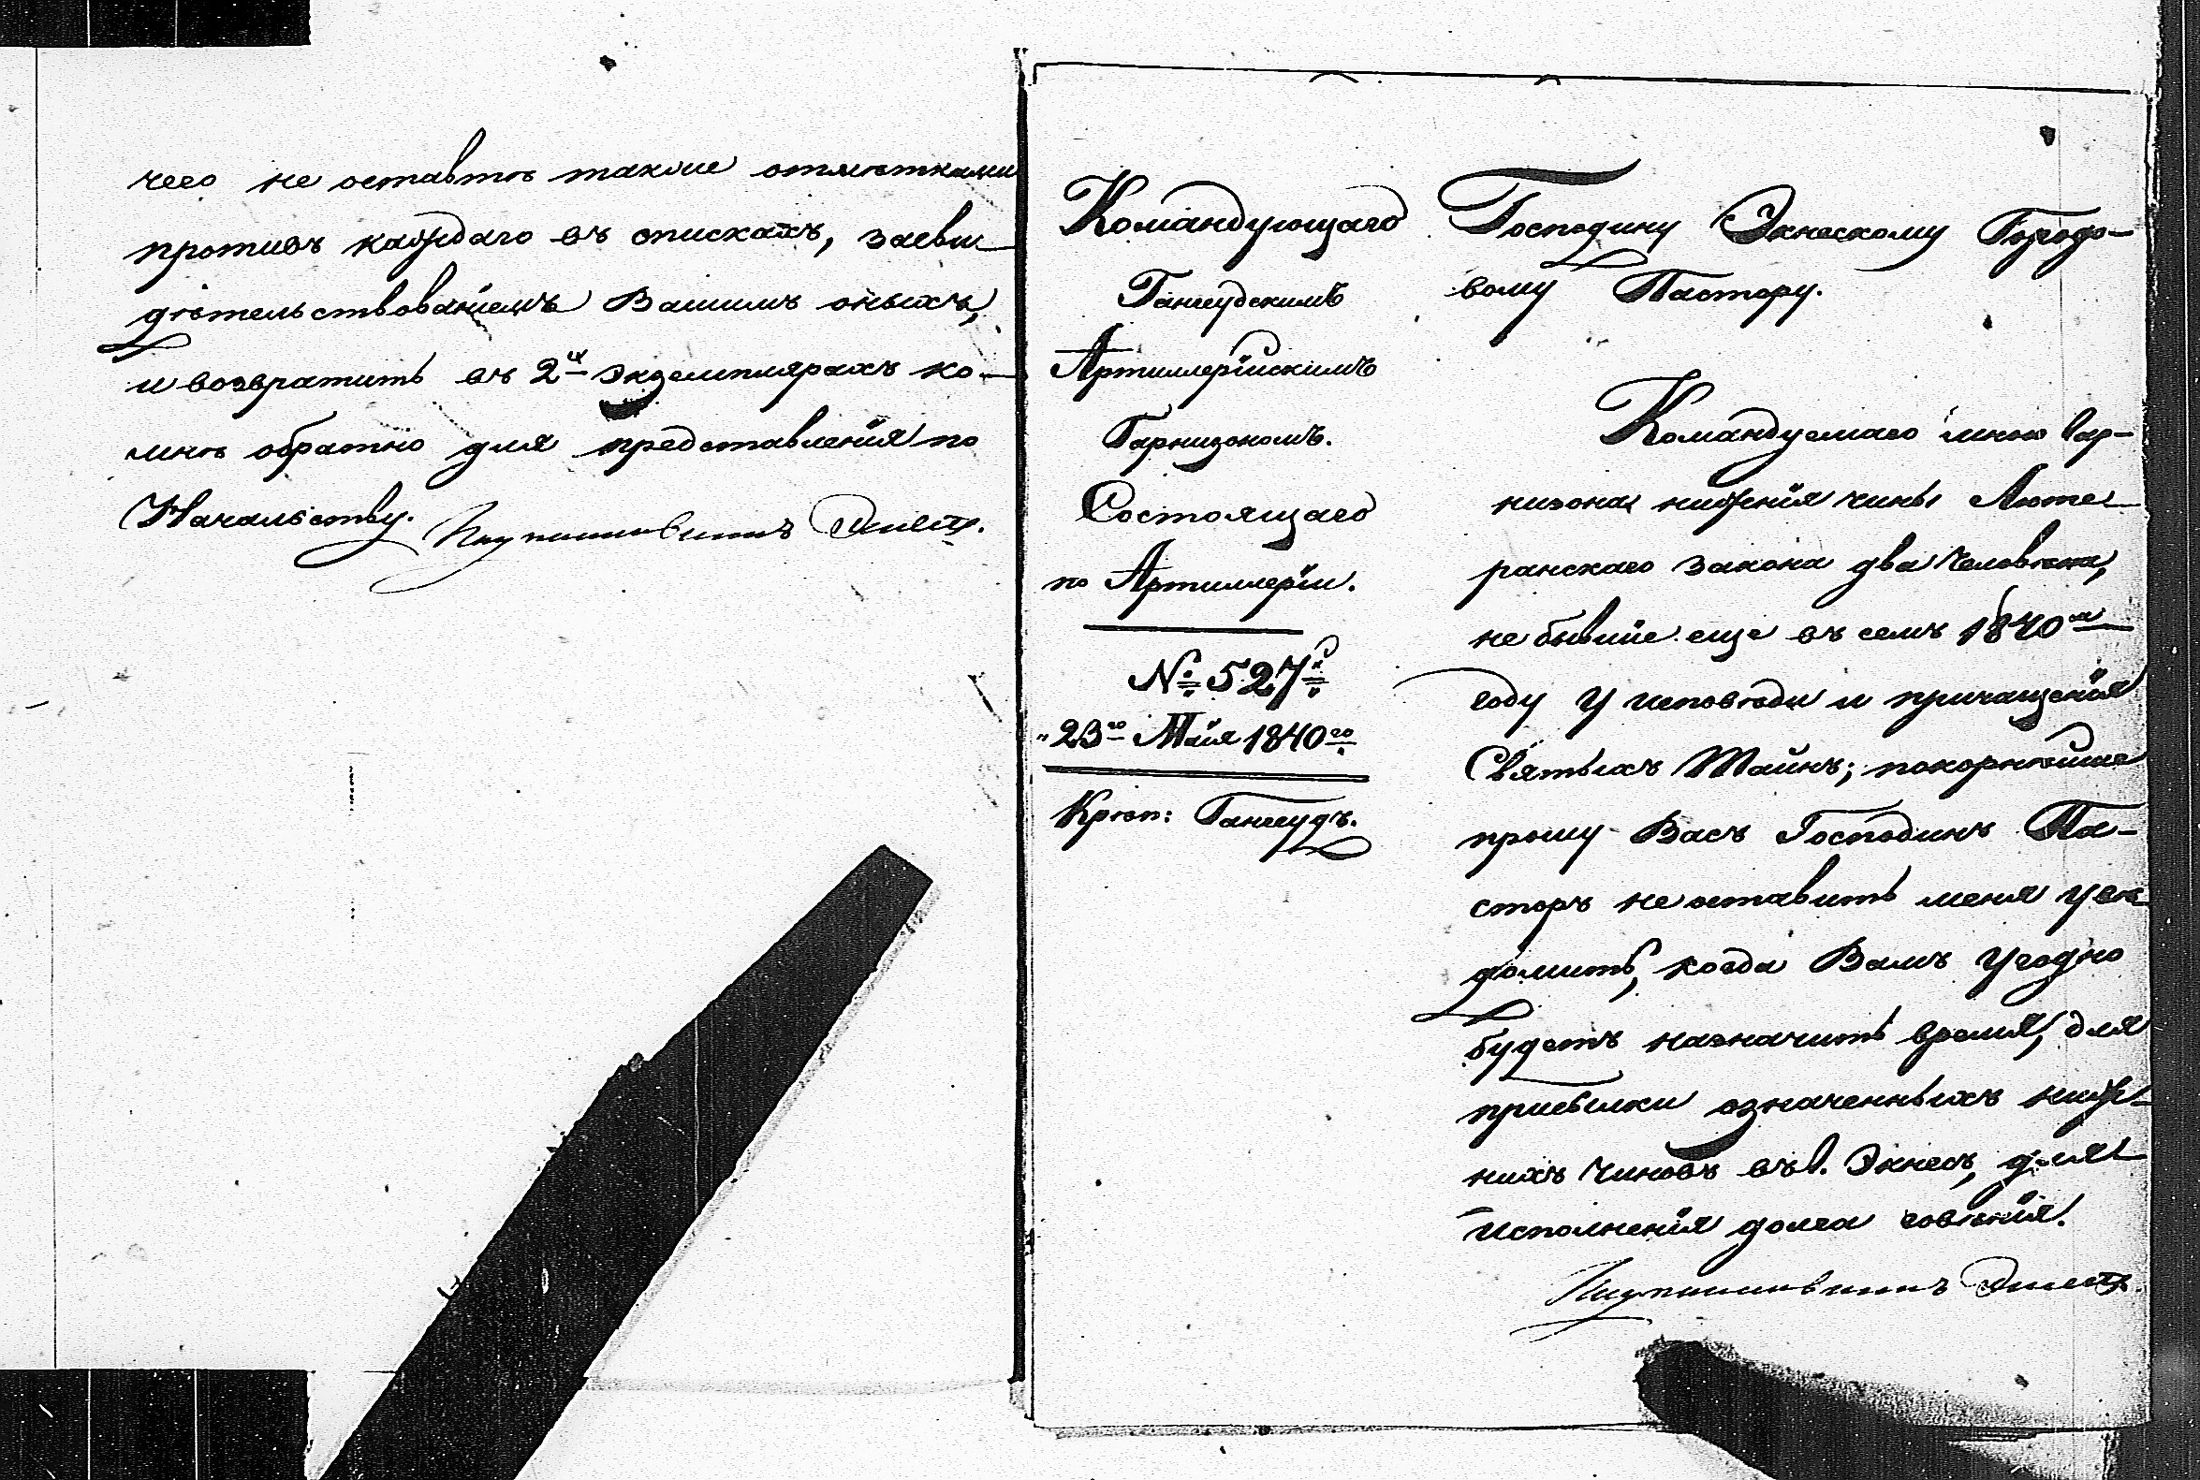 чего не оставтѣ также отмѣтками
противъ каждаго въ спискахъ, засви-
дѣтельствованіемъ Вашимъ оныхъ,
и возвратить въ 2хъ экземплярахъ ко-
мнѣ обратно для представленія по
Начальству.
Командующаго
Гангеудскимъ
Артиллерійскимъ
Гарнизономъ.
Состоящаго
по Артиллеріи.
№ 527й
"23го Маія 1840го
Крѣп: Гангеудъ.
Господину Экнескому Городо-
вому Пастору.
Командуемаго мною Гар-
низона нижнія чины Люте-
ранскаго закона два человѣка,
не бывшіе еще въ семъ 1840мъ
году у исповѣди и причащенія
Святыхъ Тайнъ; покорнѣйше
прошу Васъ Господинъ Па-
сторъ не оставить меня увѣ-
домить, когда Вамъ угодно
будетъ назначить время, для
присылки означенныхъ ниж-
нихъ чиновъ въ г. Экнесъ, для
исполненія долга говѣнія.